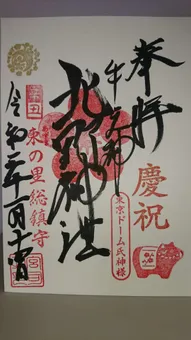 奉拝
慶祝
牛天神
東京ドーム氏神様
北野神社
辛丑
東の里総鎮守
令和三年一月十四日